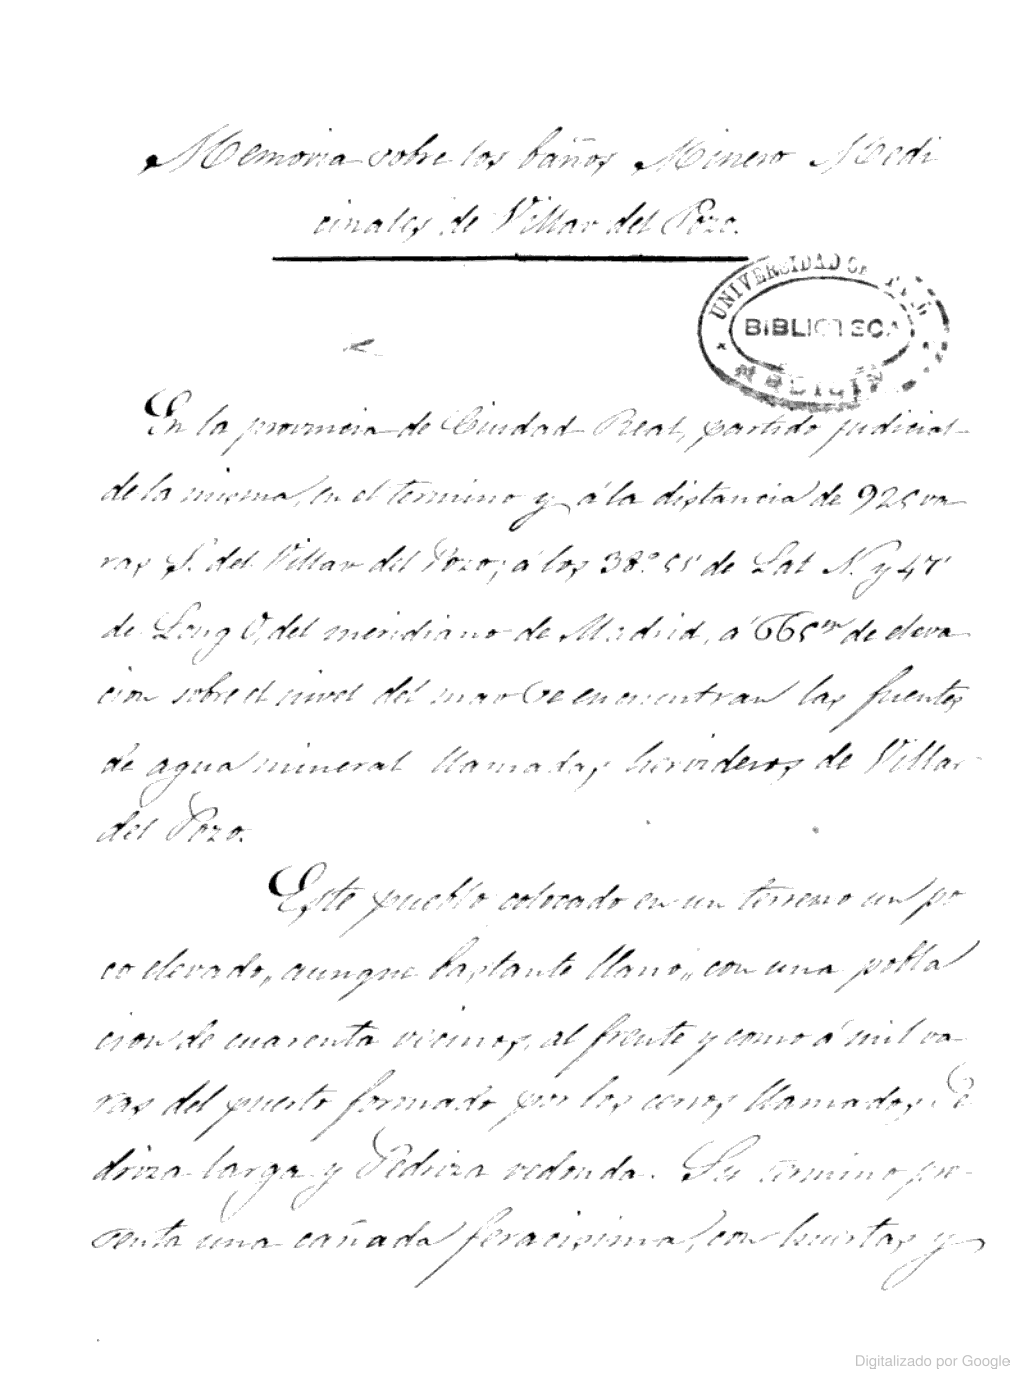 Memoria sobre los baños Minero Medi
cinales de Villar del Pozo.
UNIVERSIDAD
BIBLIOTECA
MEDICINA
En la provincia de Ciudad Real, partido judicial
de la misma, en el termino y á la distancia de 925 va
ras S. del Villar del Pozo; á los 38.° 55' de Lat N. y 4,°
de Long O, del meridiano de Madrid, á 665m de eleva
cion sobre el nivel del mar Se encuentran las fuentes
de agua mineral llamadas hervideros de Villar
del Pozo.
Este pueblo colocado en un terreno un po
co elevado, aunque bastante llano, con una pobla
cion de cuarenta vecinos, al frente y como á mil va
ras del puerto formado por los cerros llamados Pe
driza larga y Pedriza redonda. Su termino pre
senta una cañada feracisima, con huertas y
Digitalizado por Google